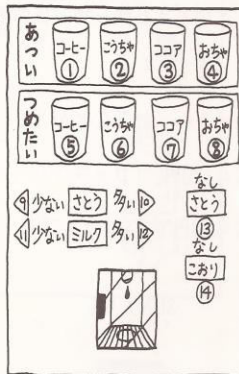 あつい
コーヒー こうちゃ ココア おちゃ
① ② ③ ④
つめたい
コーヒー こうちゃ ココア おちゃ
⑤ ⑥ ⑦ ⑧
⑨ 少ない さとう 多い ⑩
⑪ 少ない ミルク 多い ⑫
なし
さとう
⑬
なし
こおり
⑭